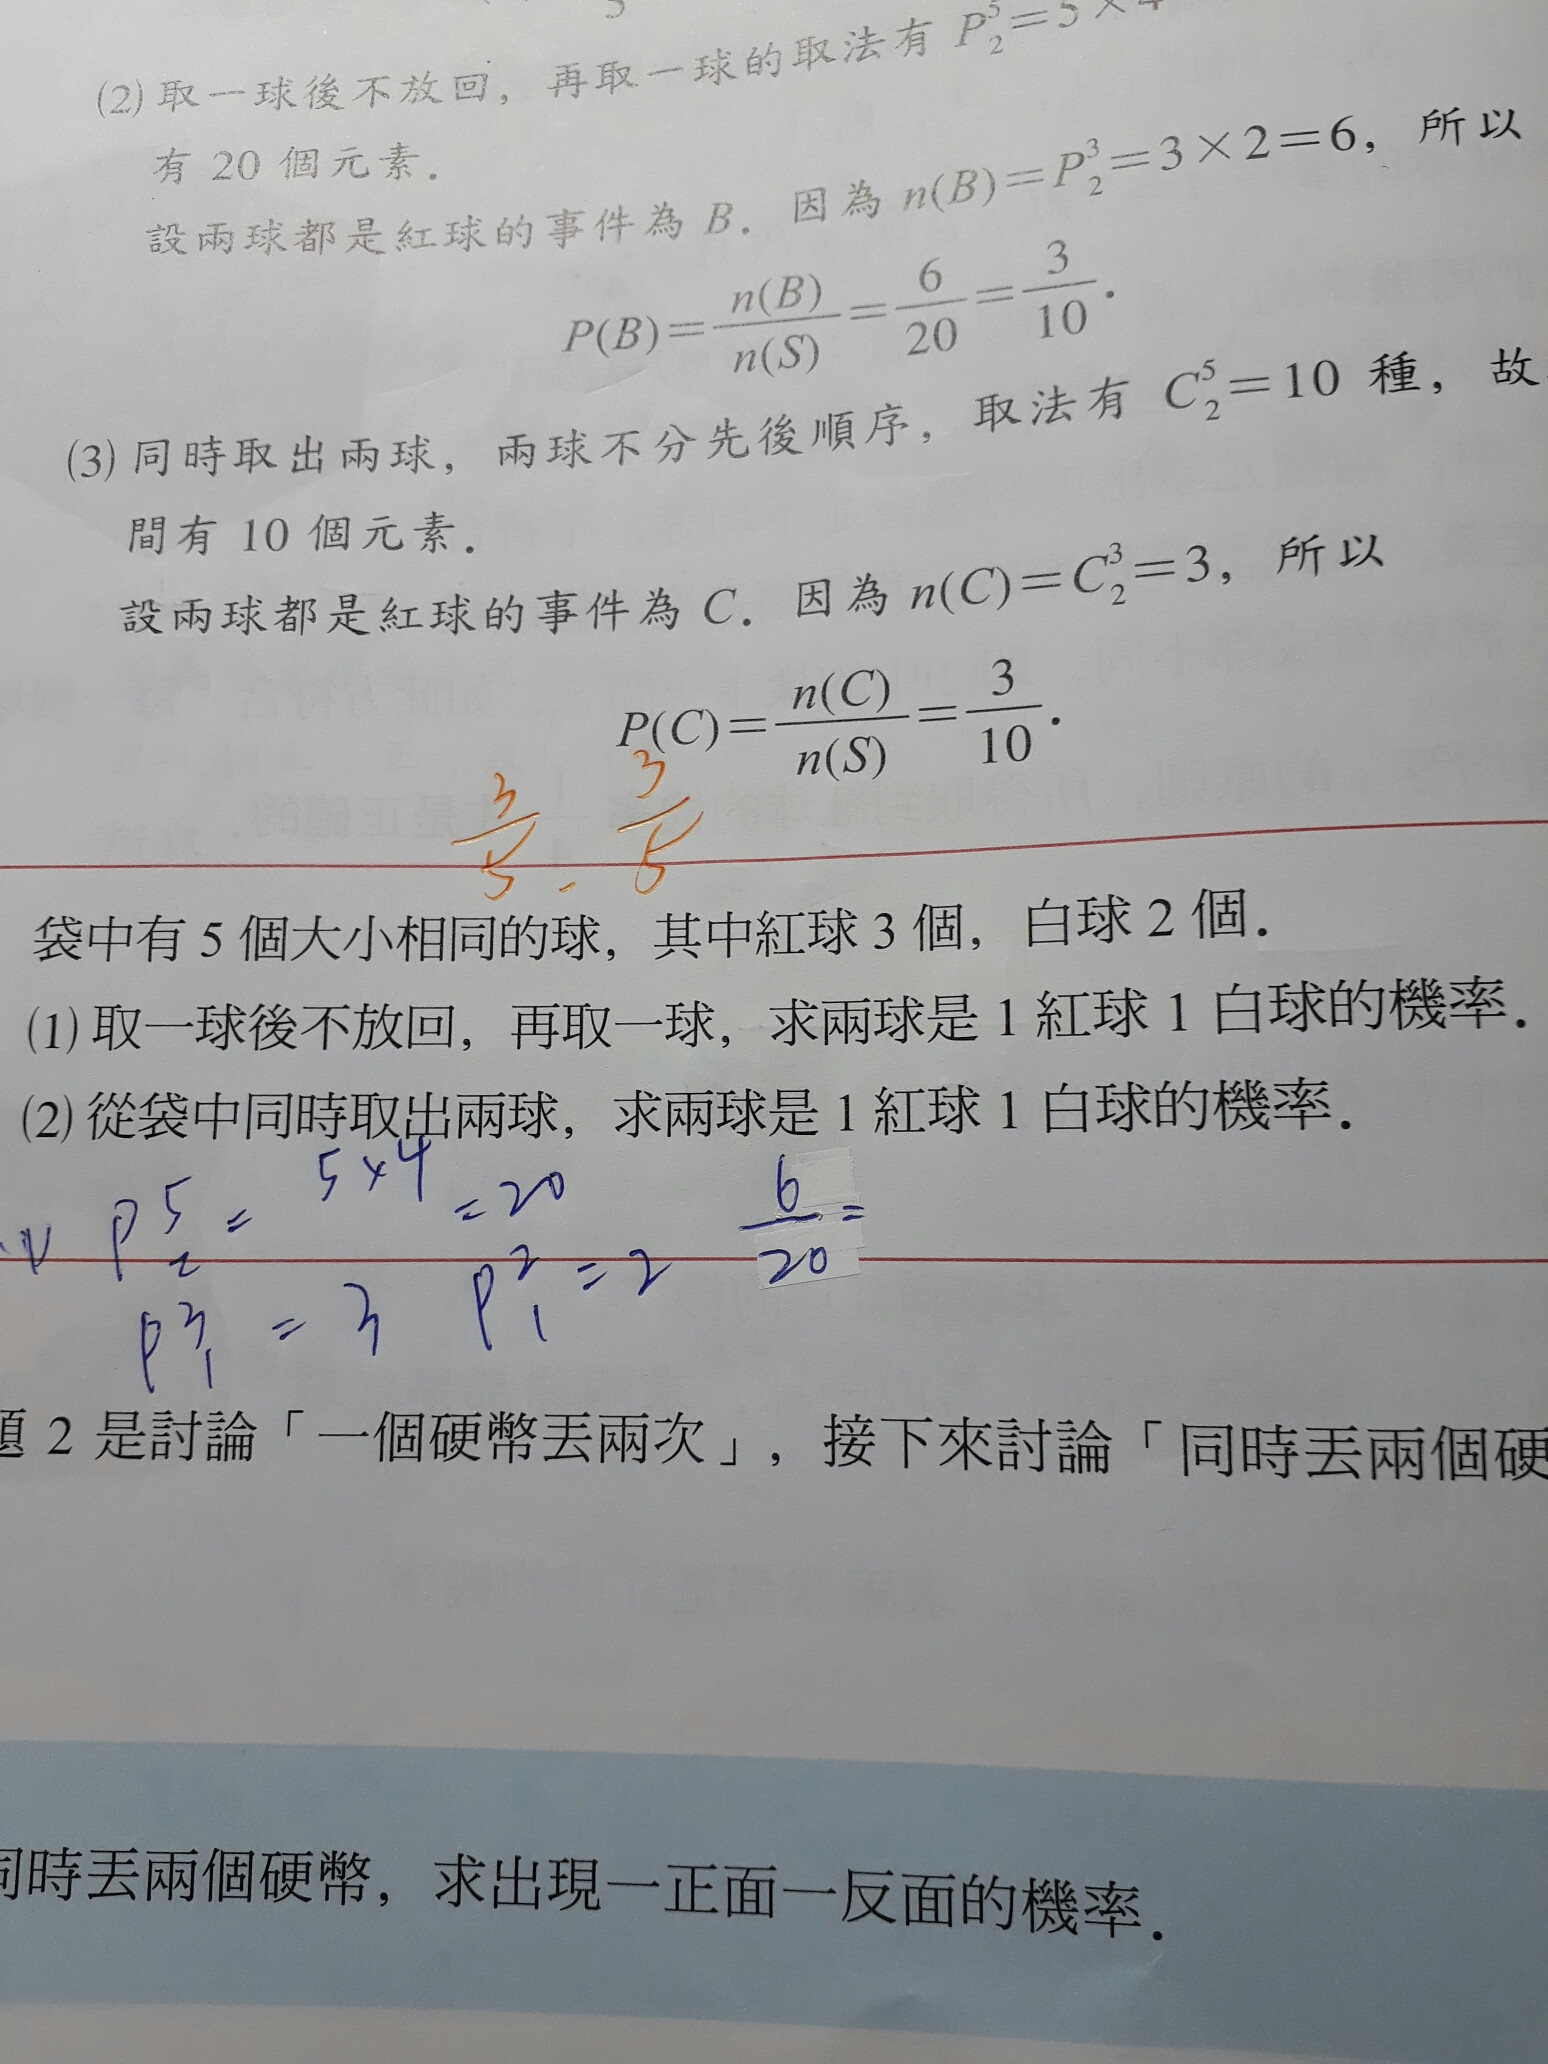 (2) 取一球後不放回，再取一球的取法有 P⁵₂=5×4
有 20 個元素．
設兩球都是紅球的事件為 B．因為 n(B)=P³₂=3×2=6，所以
P(B)=n(B)/n(S)=6/20=3/10．
(3) 同時取出兩球，兩球不分先後順序，取法有 C⁵₂=10 種，故
間有 10 個元素．
設兩球都是紅球的事件為 C．因為 n(C)=C³₂=3，所以
P(C)=n(C)/n(S)=3/10．
3/5 · 3/5
袋中有 5 個大小相同的球，其中紅球 3 個，白球 2 個．
(1) 取一球後不放回，再取一球，求兩球是 1 紅球 1 白球的機率．
(2) 從袋中同時取出兩球，求兩球是 1 紅球 1 白球的機率．
P⁵₂ = 5×4 = 20 6/20 =
P³₁ = 3 P²₁ = 2
題 2 是討論「一個硬幣丟兩次」，接下來討論「同時丟兩個硬
同時丟兩個硬幣，求出現一正面一反面的機率．